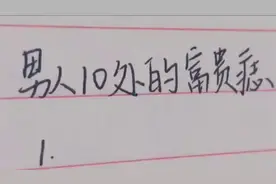 男人10处的富贵痣
1.